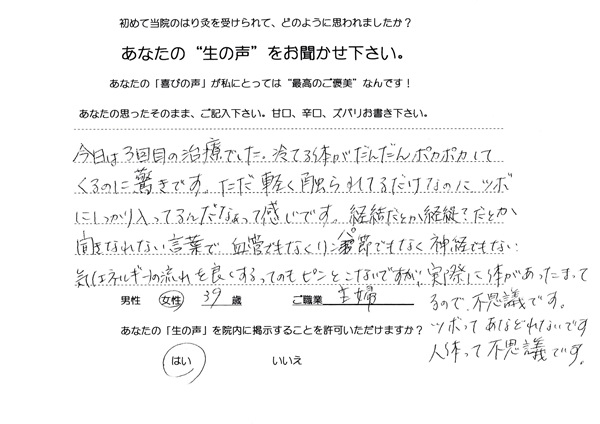 初めて当院のはり灸を受けられて、どのように思われましたか？
あなたの“生の声”をお聞かせ下さい。
あなたの「喜びの声」が私にとっては“最高のご褒美”なんです！
あなたの思ったそのまま、ご記入下さい。甘口、辛口、ズバリお書き下さい。
今日は3回目の治療でした。冷てる体がだんだんポカポカして
くるのに驚きです。ただ軽く触られてるだけなのに、ツボ
にしっかり入ってるんだなぁって感じです。経絡だとか経穴？だとか
聞きなれない言葉で、血管でもなくリンパ節でもなく神経でもない
気はエネルギーの流れを良くするってのもピンとこないですが、実際に体があったまって
るので、不思議です。
ツボってあなどれないです
人体って不思議です。
男性 女性 39 歳 ご職業 主婦
あなたの「生の声」を院内に掲示することを許可いただけますか？
はい いいえ